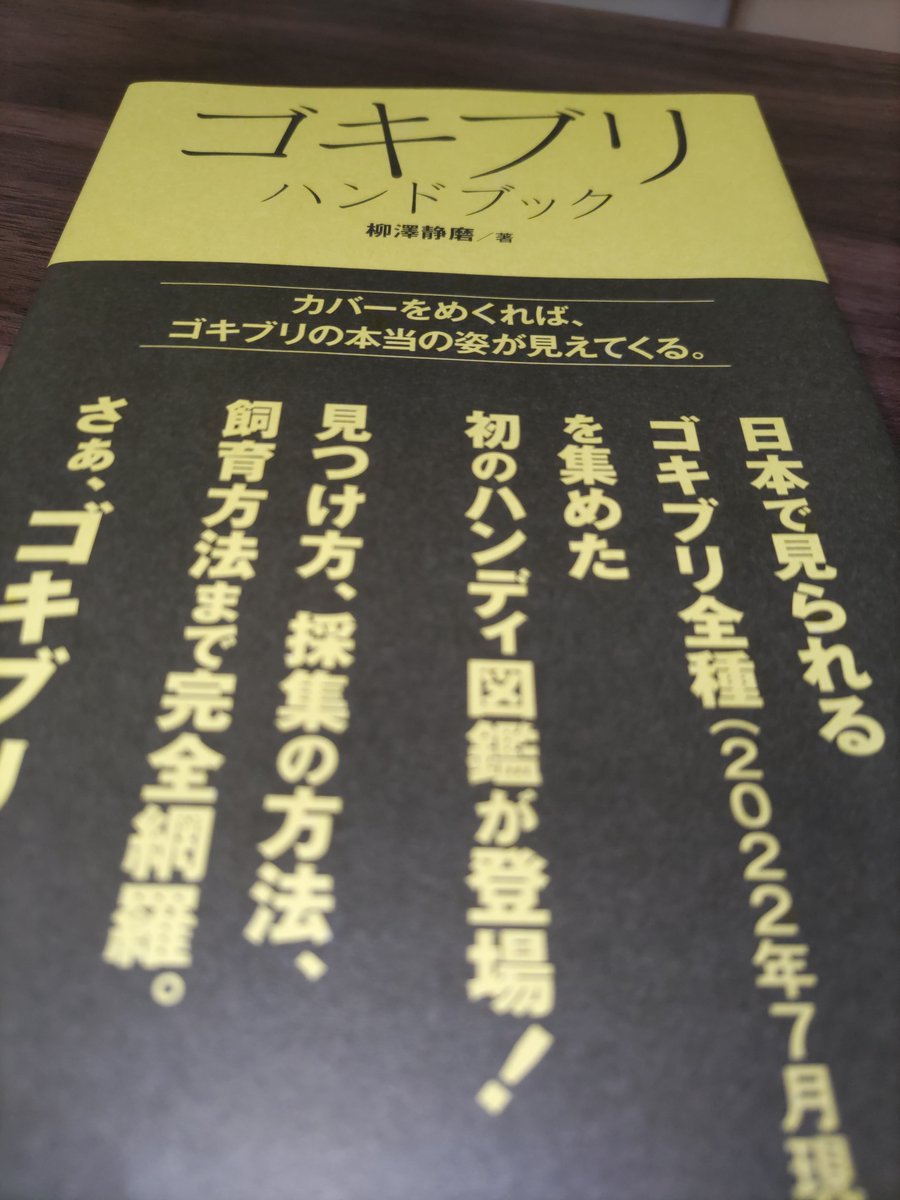 ゴキブリ
ハンドブック
柳澤静磨／著
カバーをめくれば、
ゴキブリの本当の姿が見えてくる。
日本で見られる
ゴキブリ全種（2022年7月現
を集めた
初のハンディ図鑑が登場！
見つけ方、採集の方法、
飼育方法まで完全網羅。
さぁ、ゴキブリ